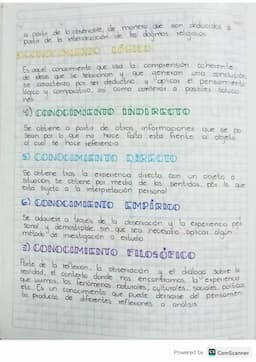 a partir de lo observable, de manera que son deducidos a
partir de la interpretación de los dogmas religiosos
CONOCIMIENTO LÓGICO
Es aquel conocimiento que usa la comprensión coherente
de ideas que se relacionan y que generan una conclusión,
se caracteriza por ser deductivo y aplicar el pensamiento
lógico y comparativo, así como combinar a posibles solucio
nes
4) CONOCIMIENTO INDIRECTO
Se obtiene a partir de otras informaciones que se po
sean por lo que no hace falta esta frente al objeto
al cual se hace referencia
5) CONOCIMIENTO DIRECTO
Se obtiene tras la experiencia directa con un objeto o
situación, se obtiene por medio de los sentidos, por lo que
esta sujeto a la interpretación personal
6) CONOCIMIENTO EMPÍRICO
Se adquiere a través de la observación y la experiencia per
sonal y demostrable sin que sea necesario aplicar algún
método de investigación o estudio
7) CONOCIMIENTO FILOSÓFICO
Parte de la reflexión, la observación y el dialogo sobre la
realidad, el contexto donde nos encontramos, la experiencia
que vivimos, los fenómenos naturales, culturales, sociales, políticos
etc. Es un conocimiento que puede derivarse del pensamien
to producto de diferentes reflexiones o análisis
Powered by CS CamScanner